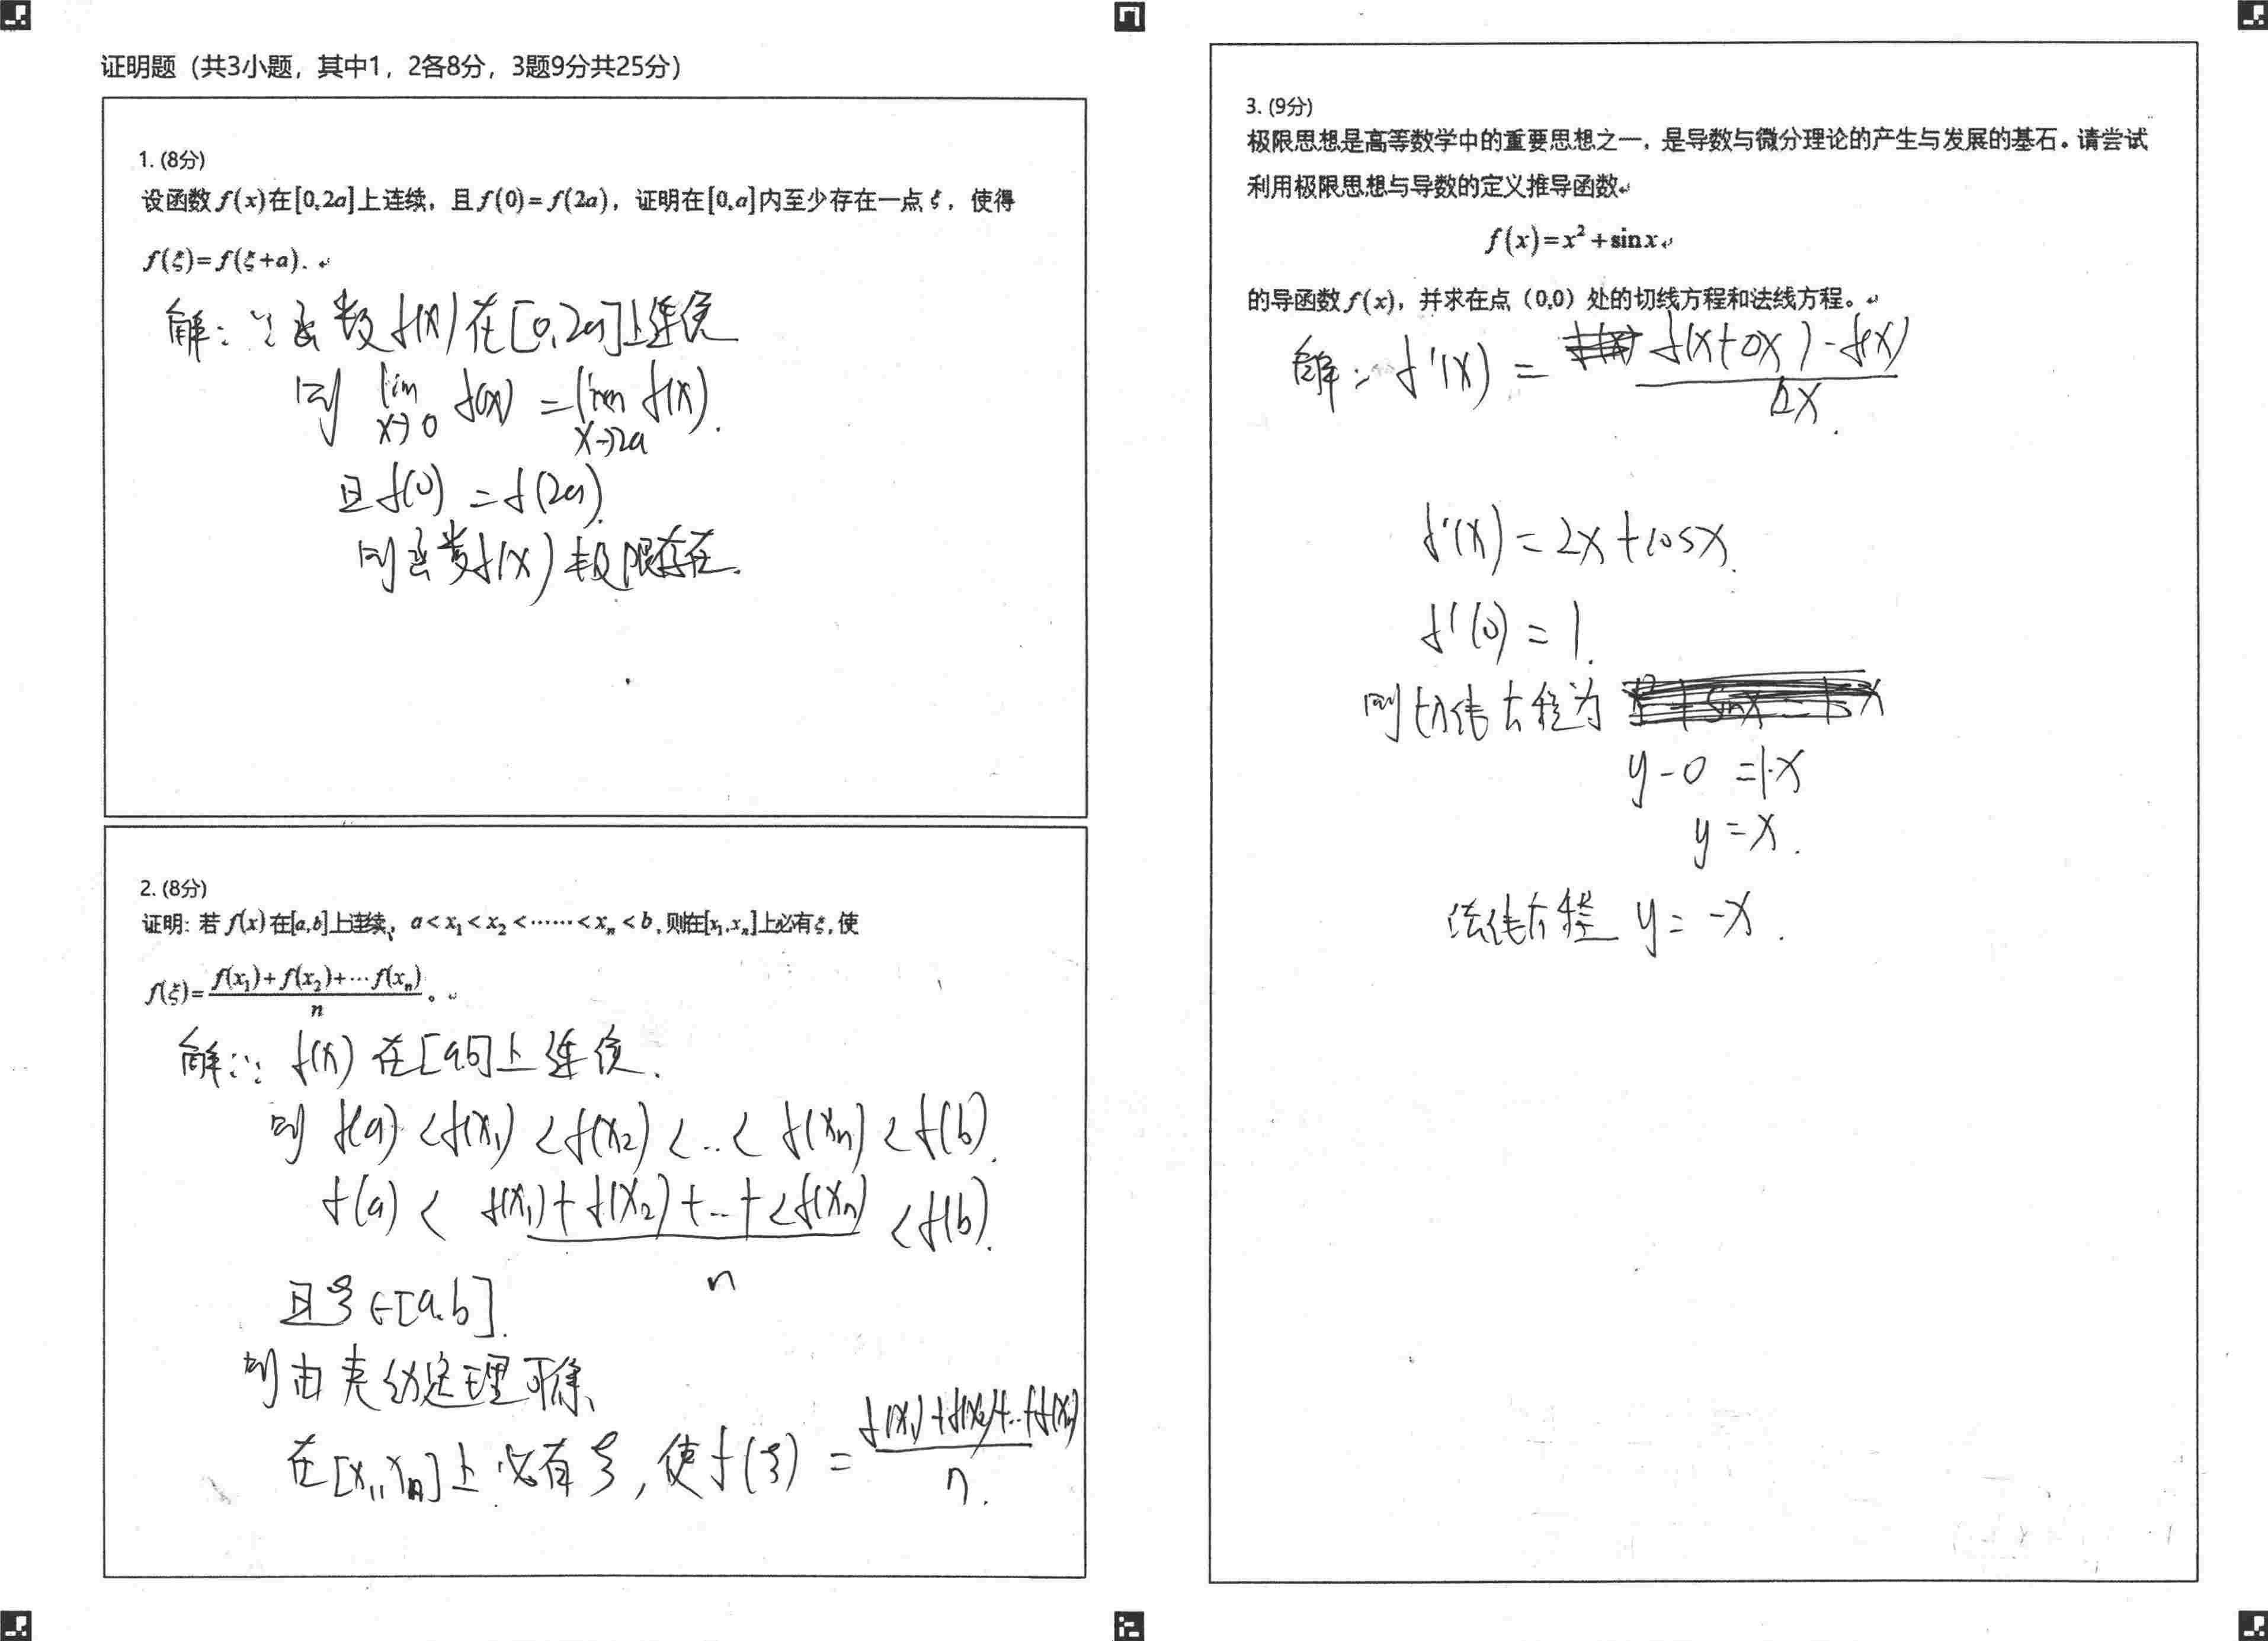 证明题（共3小题，其中1，2各8分，3题9分共25分）
1. (8分)
设函数 f(x) 在[0,2a]上连续，且 f(0)=f(2a)，证明在[0,a]内至少存在一点 ξ，使得
f(ξ)=f(ξ+a).
解：∵函数 f(x) 在[0,2a]上连续
则 lim x→0 f(x) = lim x→2a f(x).
且 f(0) = f(2a).
则函数f(x) 极限存在.
2. (8分)
证明: 若 f(x) 在[a,b]上连续，a<x₁<x₂<······<xₙ<b, 则在[x₁,xₙ]上必有ξ, 使
f(ξ)= (f(x₁)+f(x₂)+···f(xₙ))/n 。
解：∵ f(x) 在[a.b]上连续.
则 f(a) <f(x₁) <f(x₂) <..< f(xₙ) <f(b).
f(a) < (f(x₁)+f(x₂)+..+<f(xₙ))/n <f(b).
且ξ∈[a.b].
则由夹幼定理可得、
在[x₁,xₙ]上必有ξ, 使f(ξ) = (f(x₁)+f(x₂)+..+f(xₙ))/n.
3. (9分)
极限思想是高等数学中的重要思想之一，是导数与微分理论的产生与发展的基石。请尝试
利用极限思想与导数的定义推导函数
f(x)=x²+sinx
的导函数 f(x)，并求在点（0,0）处的切线方程和法线方程。
解：f'(x) = (f(x+Δx)-f(x))/Δx.
f'(x) = 2x+cosx.
f'(0) = 1.
则切线方程为
y-0 =1·x
y=x.
法线方程 y= -x.